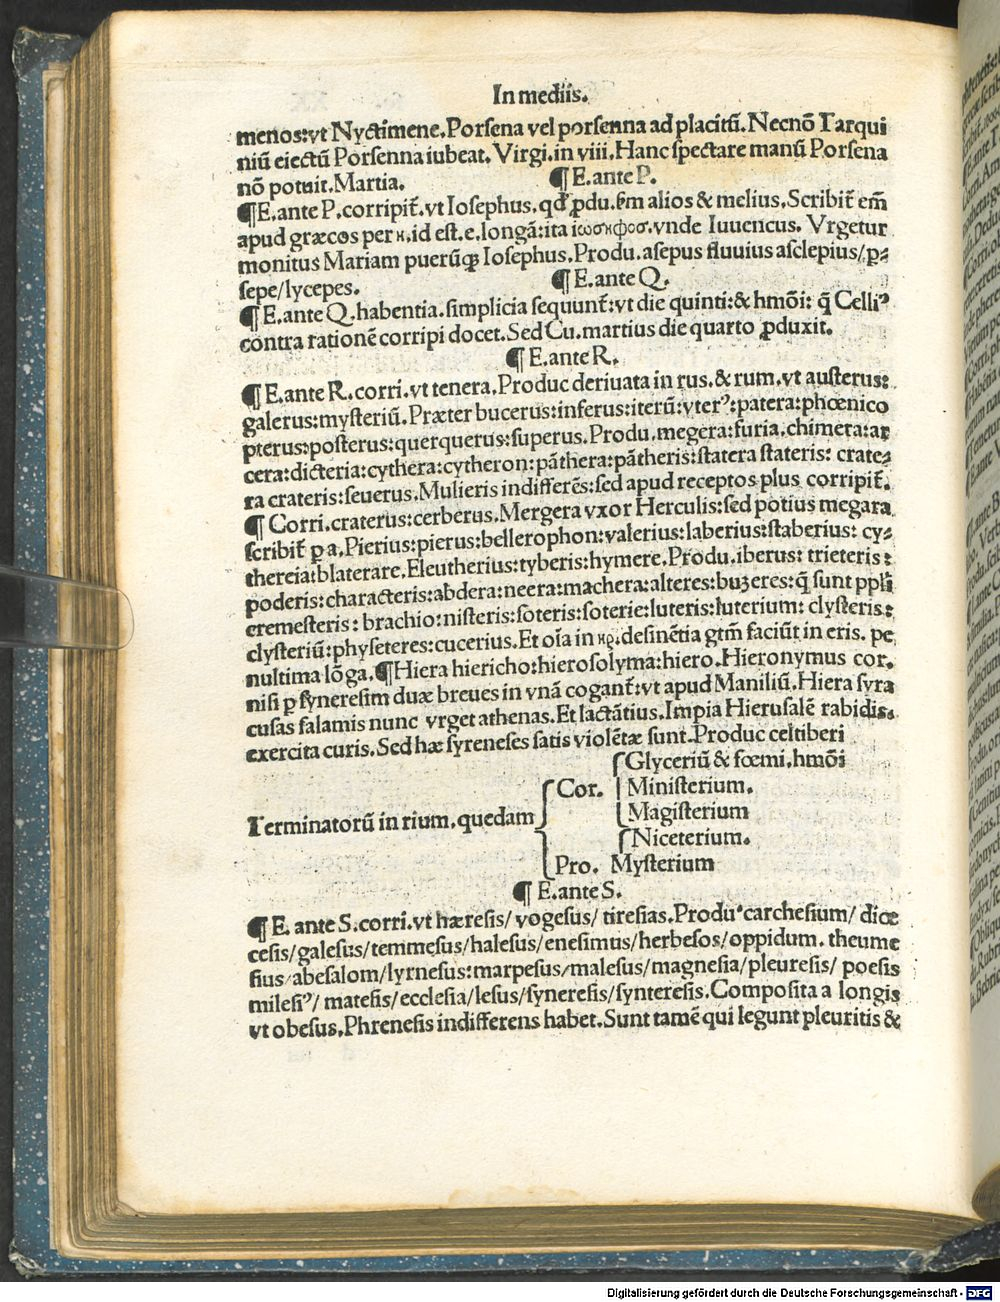 In mediis.
menos:vt Nyctimene. Porſena vel porſenna ad placitū. Necnō Tarqui
niū eiectū Porſenna iubeat. Virgi. in viii. Hanc ſpectare manū Porſena
nō potuit. Martia. ¶ E. ante P.
¶ E. ante P. corripit̄. vt Ioſephus. qđ ꝓdu. ẜm alios & melius. Scribit̄ em̄
apud græcos per ϰ. id eſt. e. longā: ita ιωσηφοσ. vnde Iuuencus. Vrgetur
monitus Mariam puerūqꝫ Ioſephus. Produ. aſepus fluuius aſclepius/ p-
ſepe/lycepes. ¶ E. ante Q.
¶ E. ante Q. habentia. ſimplicia ſequunt̄: vt die quinti: & hmōi: q̄ Celliꝰ
contra rationē corripi docet. Sed Cu. martius die quarto ꝓduxit.
¶ E. ante R.
¶ E. ante R. corri. vt tenera. Produc deriuata in rus. & rum. vt auſterus:
galerus: myſteriū. Præter bucerus: inferus: iterū: vterꝰ: patera: phœnico
pterus: poſterus: querquerus: ſuperus. Produ. megera: furia. chimera: ar
cera: dicteria: cythera: cytheron: pāthera: pātheris: ſtatera ſtateris: crate-
ra crateris: ſeuerus. Mulieris indifferēs: ſed apud receptos plus corripit̄.
¶ Corri. craterus: cerberus. Mergera vxor Herculis: ſed potius megara
ſcribit̄ ꝑ a. Pierius: pierus: bellerophon: valerius: laberius: ſtaberius: cy-
thereia: blaterare. Eleutherius: tyberis: hymere. Produ. iberus: trieteris:
poderis: characteris: abdera: neera: machera: alteres: buzeres: q̄ ſunt ppl̄i
eremeſteris: brachio: niſteris: ſoteris: ſoterie: luteris: luterium: clyſteris:
clyſteriū: phyſeteres: cucerius. Et oīa in ηρ. deſinētia gtm̄ faciūt in eris. pe
nultima lōga. ¶ Hiera hiericho: hieroſolyma: hiero. Hieronymus cor.
niſi ꝑ ſyneresim duæ breues in vnā cogant̄: vt apud Maniliū. Hiera ſyra
cuſas ſalamis nunc vrget athenas. Et lactātius. Impia Hieruſalē rabidis.
exercita curis. Sed hæ ſyreneſes ſatis violētæ ſunt. Produc celtiberi
Glyceriū & fœmi. hmōi
Cor. Miniſterium.
Magiſterium
Terminatorū in rium. quedam
Niceterium.
Pro. Myſterium
¶ E. ante S.
¶ E. ante S. corri. vt hæreſis/ vogeſus/ tireſias. Produ. carcheſium/ diœ
ceſis/galeſus/temmeſus/haleſus/eneſimus/herbeſos/oppidum. theume
ſius/abeſalom/lyrneſus: marpeſus/maleſus/magneſia/pleureſis/ poeſis
mileſiꝰ/ mateſis/eccleſia/leſus/ſynereſis/ſyntereſis. Compoſita a longis
vt obeſus. Phreneſis indifferens habet. Sunt tamē qui legunt pleuritis &
Digitalisierung gefördert durch die Deutsche Forschungsgemeinschaft - DFG